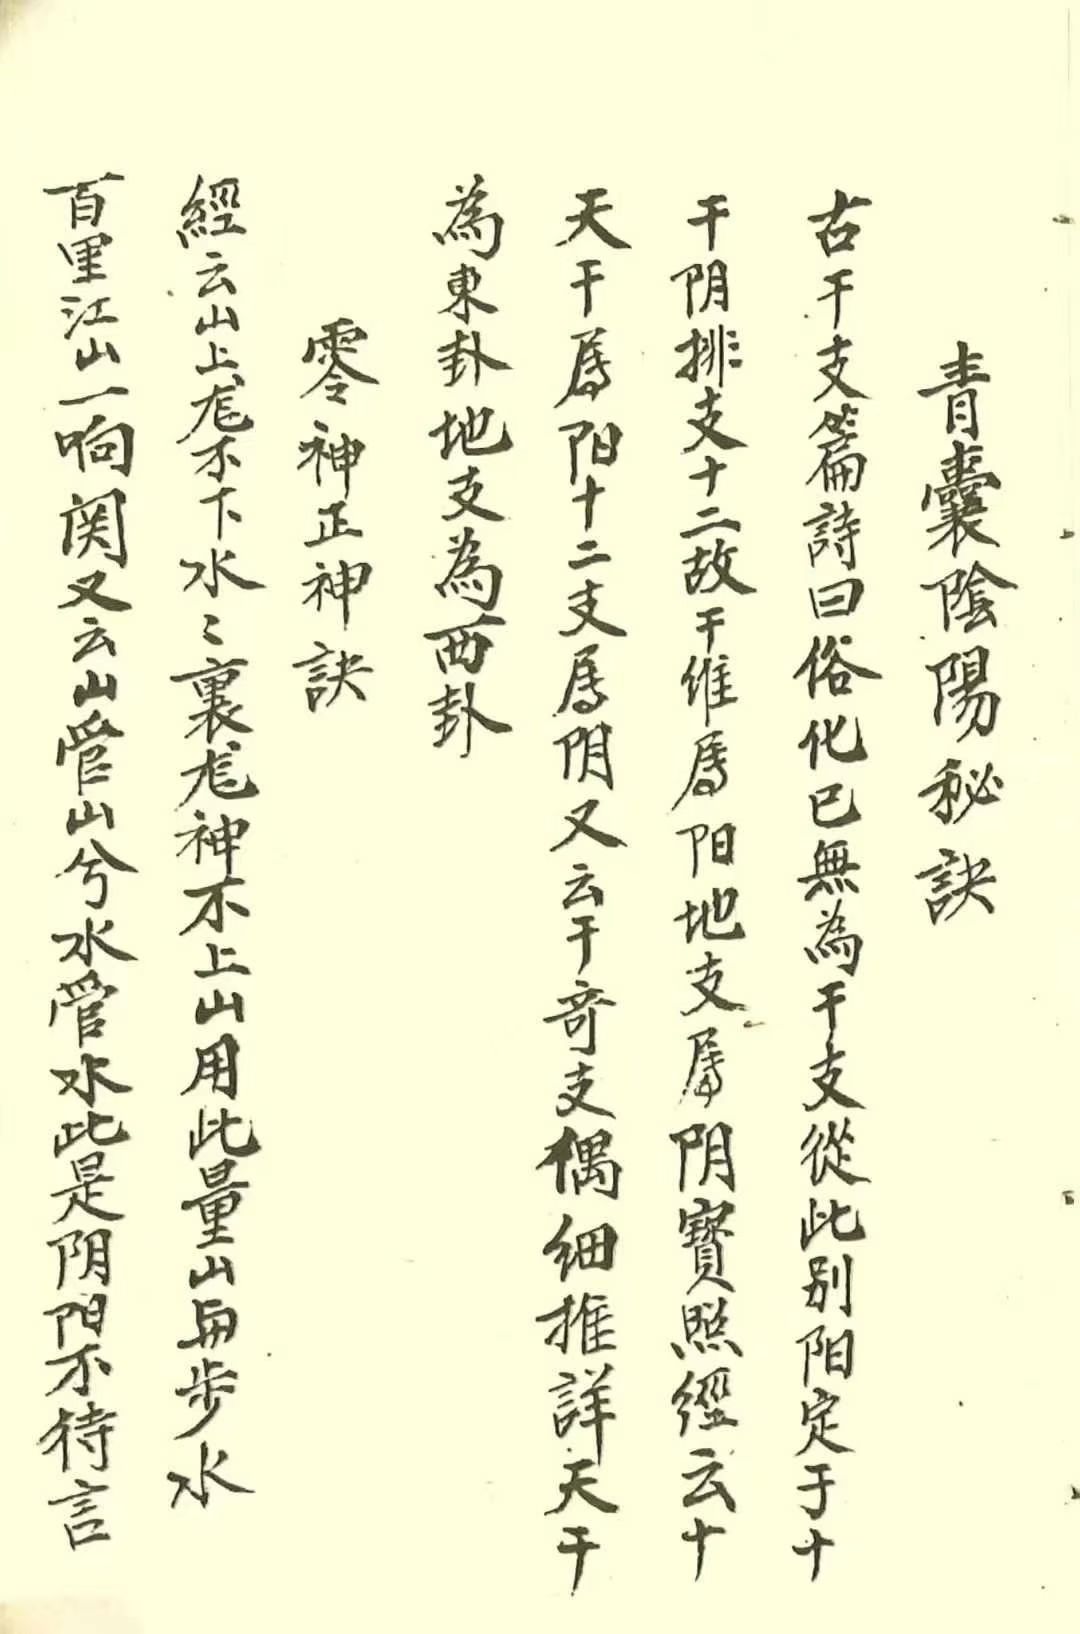 青囊陰陽秘訣
古干支篇詩曰俗化已無為干支從此別阳定于十
干阴排支十二故干维属阳地支属阴寳照經云十
天干属阳十二支属阴又云干奇支偶细推詳天干
為東卦地支為西卦
零神正神訣
經云山上龙不下水〻裏龙神不上山用此量山与步水
百里江山一响関又云山管山兮水管水此是阴阳不待言